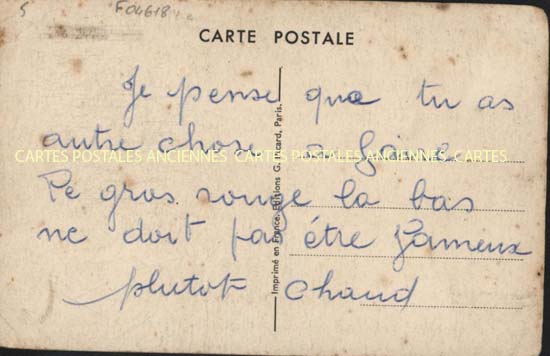 5
F04618
CARTE POSTALE
Je pense que tu as
autre chose a faire
CARTES POSTALES ANCIENNES CARTES POSTALES ANCIENNES CARTES
Le gros rouge la bas
ne doit pas être fameux
plutot chaud
Imprimé en France. Editions G. Picard, Paris.